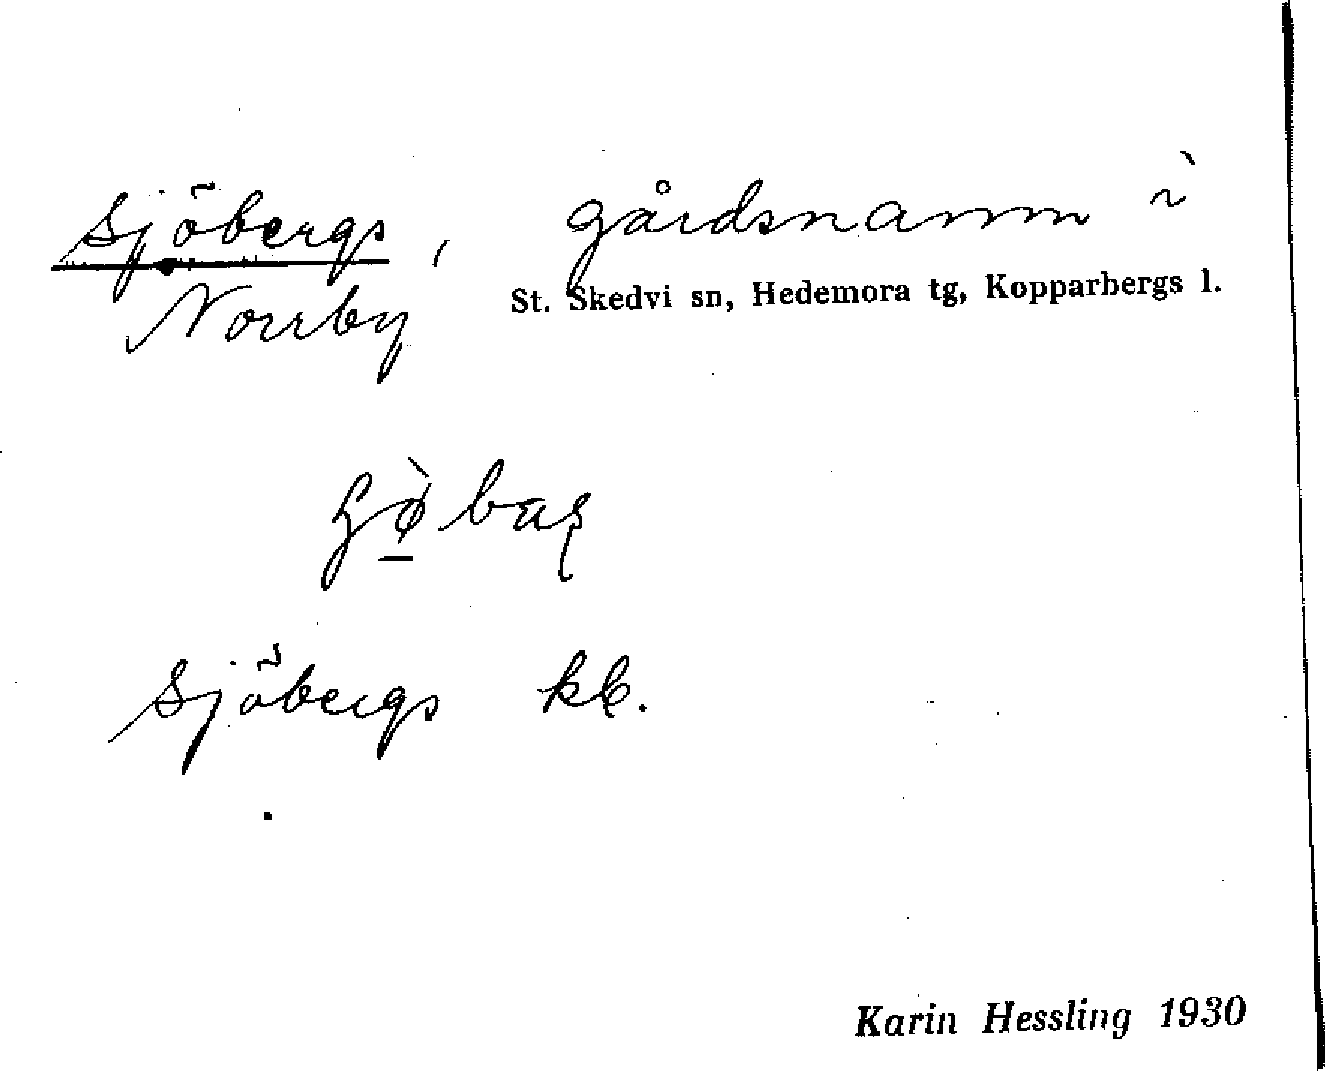 Sjöbergs, gårdsnamn i
St. Skedvi sn, Hedemora tg, Kopparbergs l.
Norrby
Sjöbergs kb.
Karin Hessling 1930